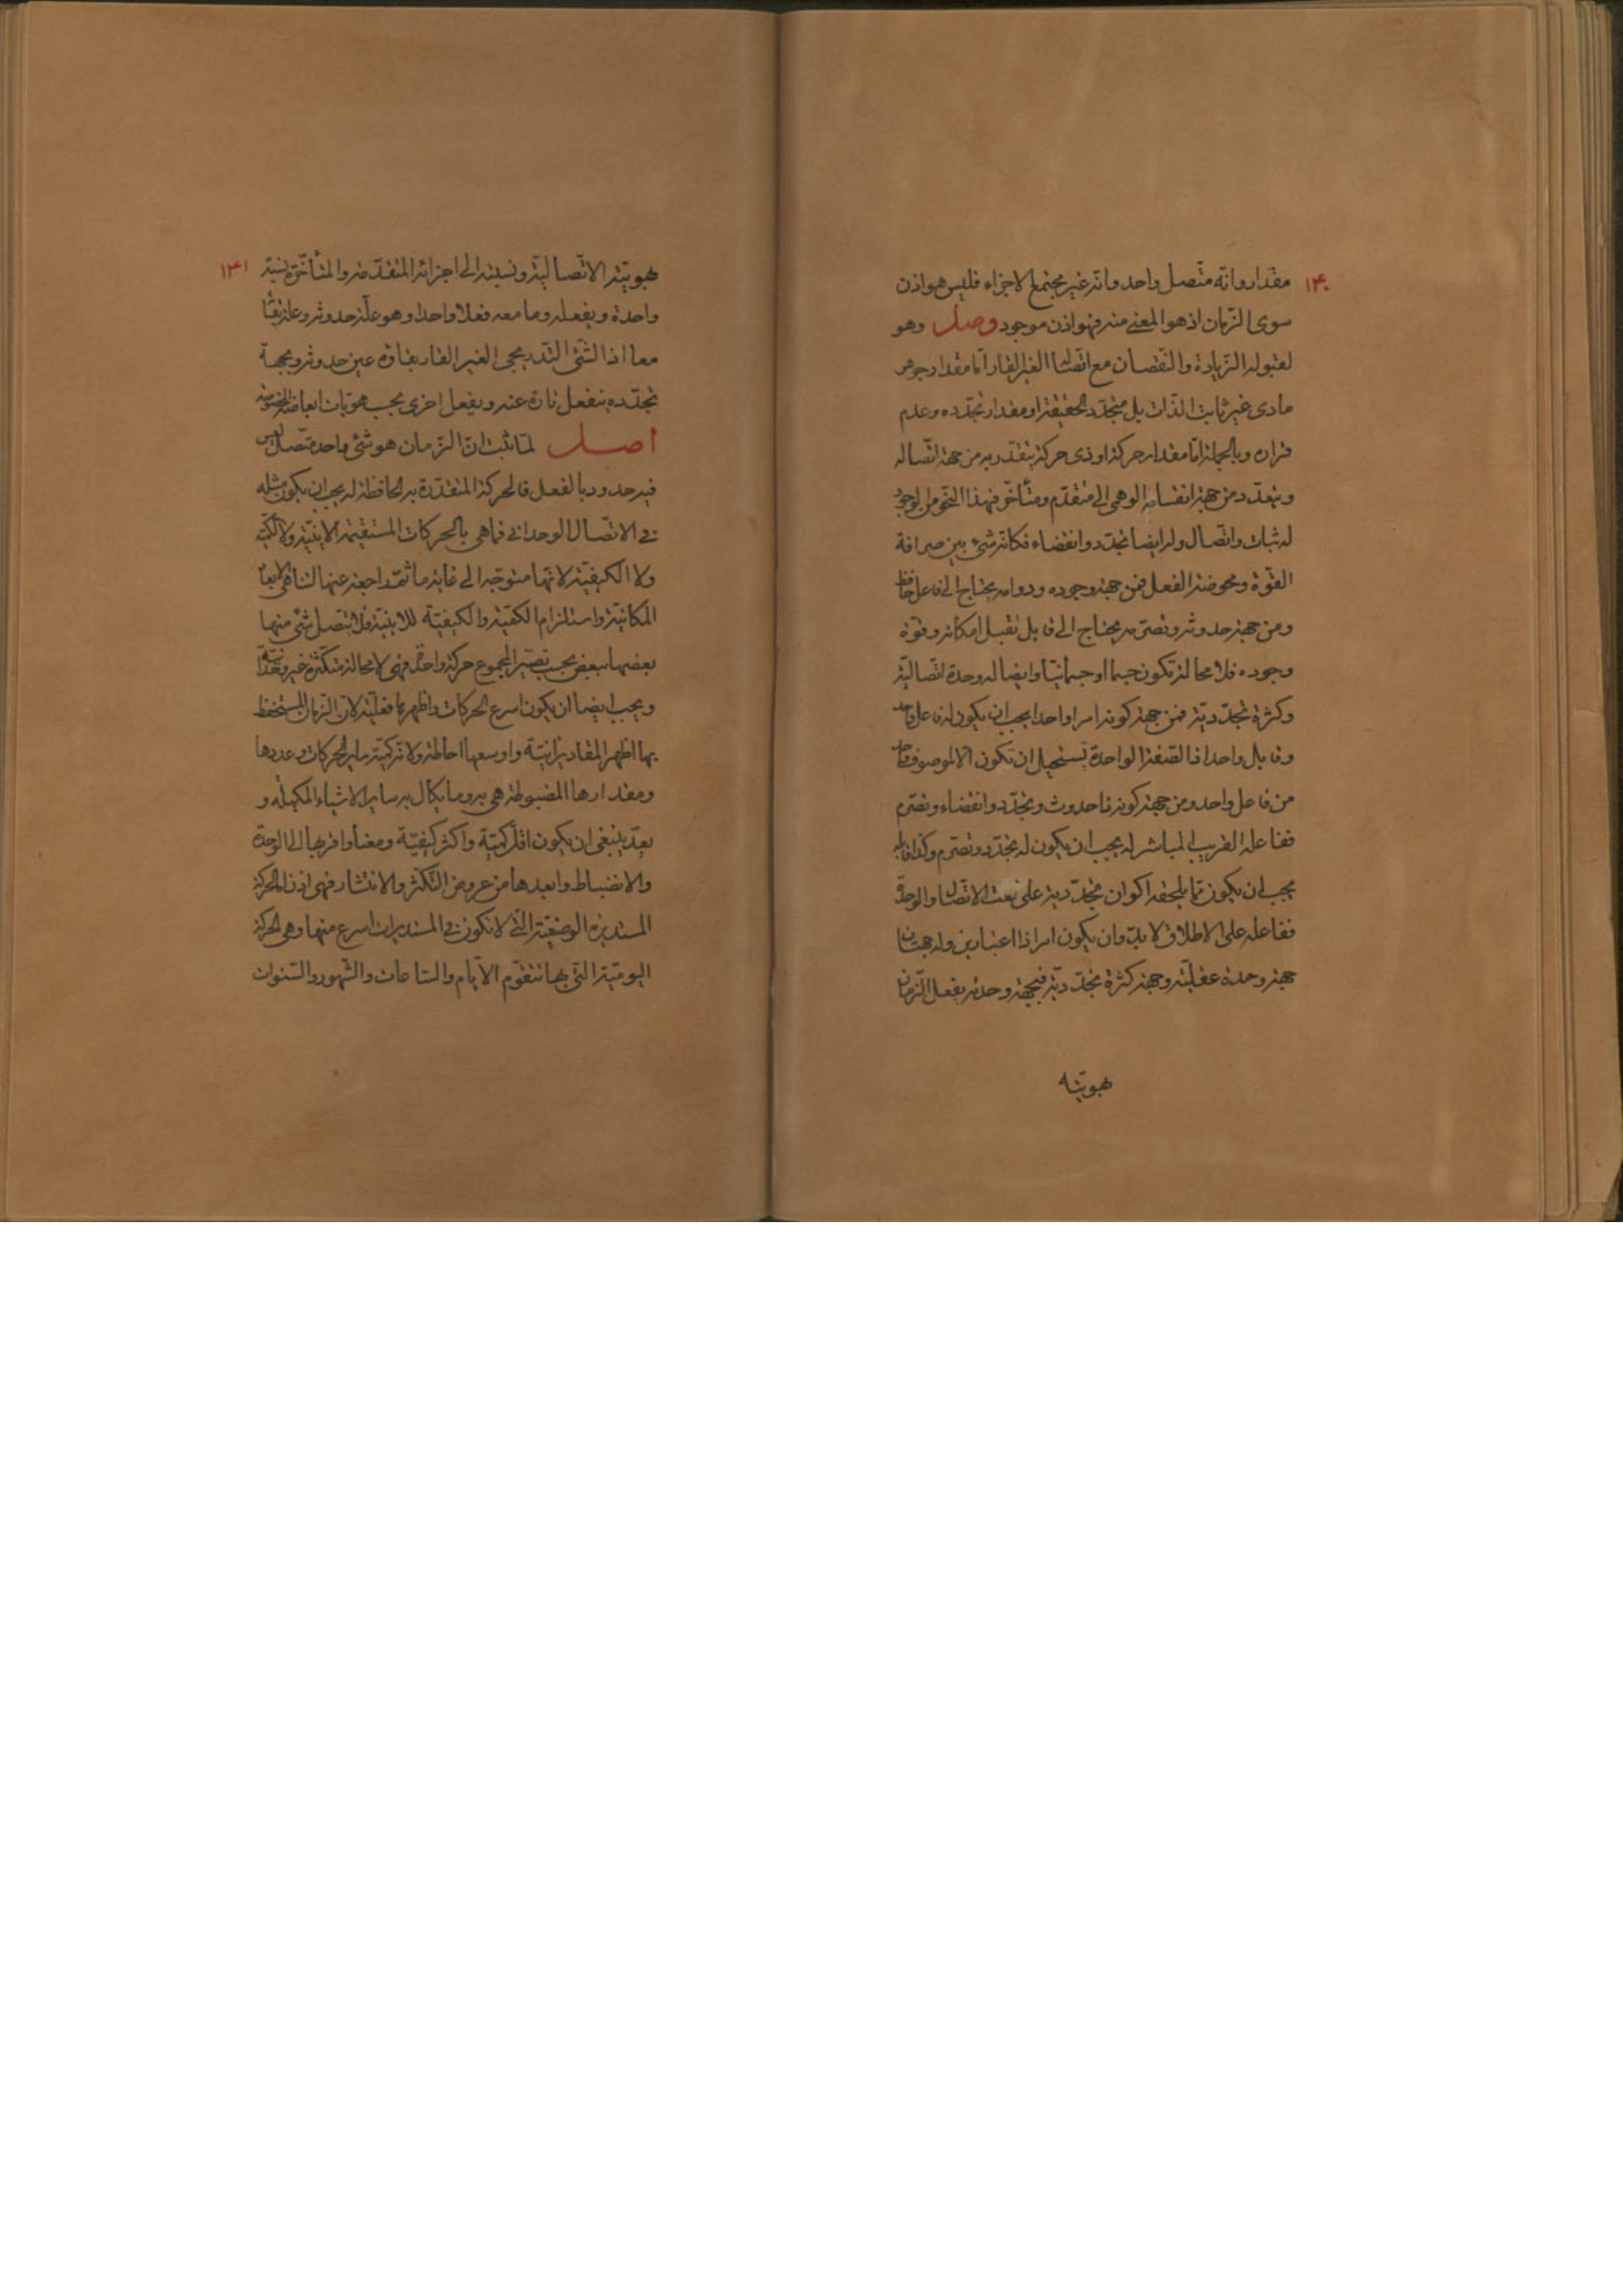 ١٤٠
مقدار وانّه متّصل واحد وانّه غير مجتمع الاجزاء فليس هو اذن
سوى الزّمان اذ هو المعنى منه فهو اذن موجود وصل وهو
لقبوله الزّيادة والنّقصان مع اتّصاله الغير القارّ امّا مقدار جوهر
مادى غير ثابت الذّات بل متجدّد الحقيقة او مقدار تجدّده وعدم
قراره وبالجملة امّا مقدار حركة او ذى حركة يتقدّر به من جهة اتّصاله
ويتعدّد من جهة انقسامه الوهمى الى متقدّم ومتأخّر فهذا النّحو من الوجود
له ثبات واتّصال وله ايضا تجدّد وانقضاء فكانّه شىء بين صرافة
القوّة ومحوضة الفعل فمن جهة وجوده ودوامه يحتاج الى فاعل حافظ
ومن جهة حدوثه وتصرّمه يحتاج الى قابل يقبل امكانه وقوّة
وجوده فلا محالة تكون جسما او جسمانيّا وايضا له وحدة اتّصاليّة
وكثرة تجدّديّة فمن جهة كونه امرا واحدا يجب ان يكون له فاعل واحد
وقابل واحد اذ الصّفة الواحدة يستحيل ان تكون الّا لموصوف واحد
من فاعل واحد ومن جهة كونه ذا حدوث وتجدّد وانقضاء وتصرّم
ففاعله القريب المباشر له يجب ان يكون له تجدّد وتصرّم وكذا قابله
يجب ان يكون ممّا يلحقه اكوان تجدّديّة على نعت الاتّصال والوحدة
ففاعله على الاطلاق لا بدّ وان يكون امرا ذا اعتبارين وله جهتان
جهة وحدة عقليّة وجهة كثرة تجدّديّة فبجهة وحدته يفعل الزّمان
هويّته
١٤١
هويّته الاتّصاليّة ونسبته الى اجزائه المتقدّمة والمتأخّرة نسبة
واحدة ويفعله وما معه فعلا واحدا وهو علّة حدوثه وعلّة بقائه
معا اذ الشّىء التّدريجى الغير القارّ بقاؤه عين حدوثه وبجهة
تجدّده ينفعل تارة عنه ويفعل اخرى بحسب هويّات ابعاضه المخصوصة
اصل لمّا ثبت انّ الزّمان هو شىء واحد متّصل ليس
فيه حدود بالفعل فالحركة المتقدّرة به الحافظة له يجب ان يكون مثله
فى الاتّصال الوحدانى فما هى بالحركات المستقيمة الاينيّة ولا الكميّة
ولا الكيفيّة لانّها متوجّهة الى غاية ما ثمّ راجعة عنها لتناهى الابعاد
المكانيّة واستلزام الكميّة والكيفيّة للاينيّة فلا يتّصل شىء منها
بعضها ببعض بحيث تصير المجموع حركة واحدة فهى لا محالة متكثّرة غير وحدانيّة
ويجب ايضا ان يكون اسرع الحركات واظهرها فعليّة لانّ الزّمان المستحفظ
بها اظهر المقادير انيّة واوسعها احاطة ولانّ كميّة ساير الحركات وعددها
ومقدارها المضبوطة هى به وما يكال به ساير الاشياء المكيلة و
يعدّ ينبغى ان يكون اقلّ كميّة واكثر كيفيّة ومعنا واقربها الى الوحدة
والانضباط وابعدها من عروض التّكثّر والانتشار فهى اذن الحركة
المستديرة الوضعيّة الّتى لا تكون فى المستديرات اسرع منها وهى الحركة
اليوميّة الّتى بها تتقوّم الايّام والسّاعات والشّهور والسّنوات